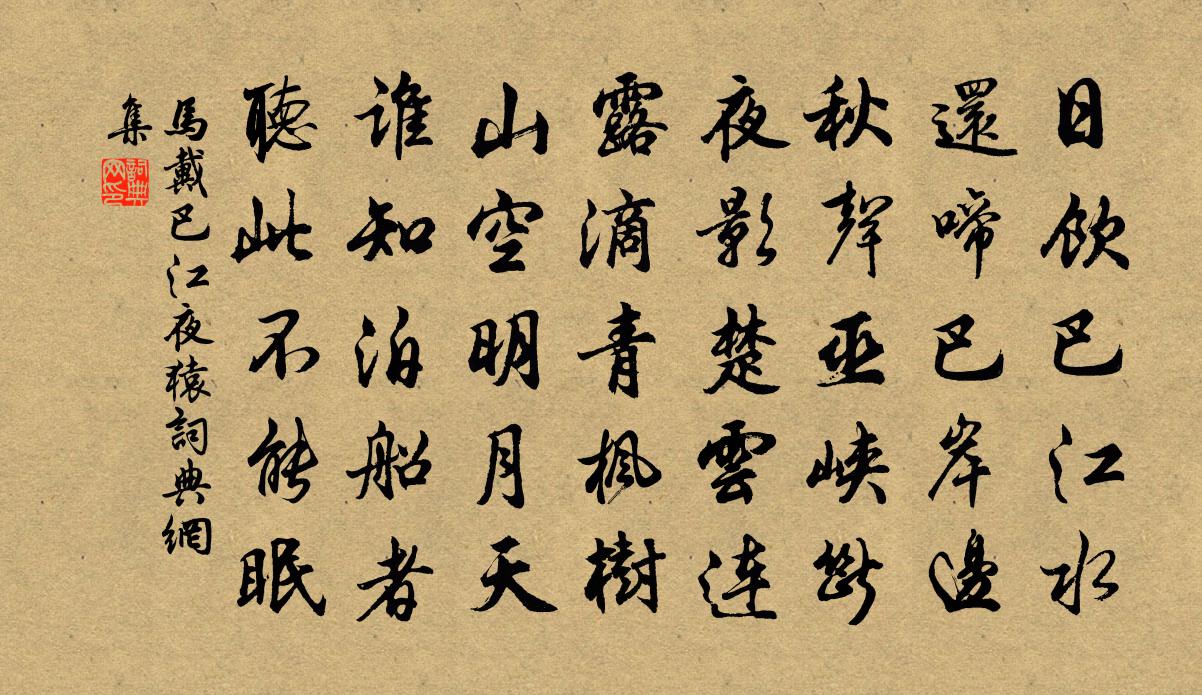 日飲巴江水
還啼巴岸邊
秋聲巫峽斷
夜影楚雲連
露滴青楓樹
山空明月天
谁知泊船者
聽此不能眠
馬戴巴江夜猿詞典網
集
詞典
网印